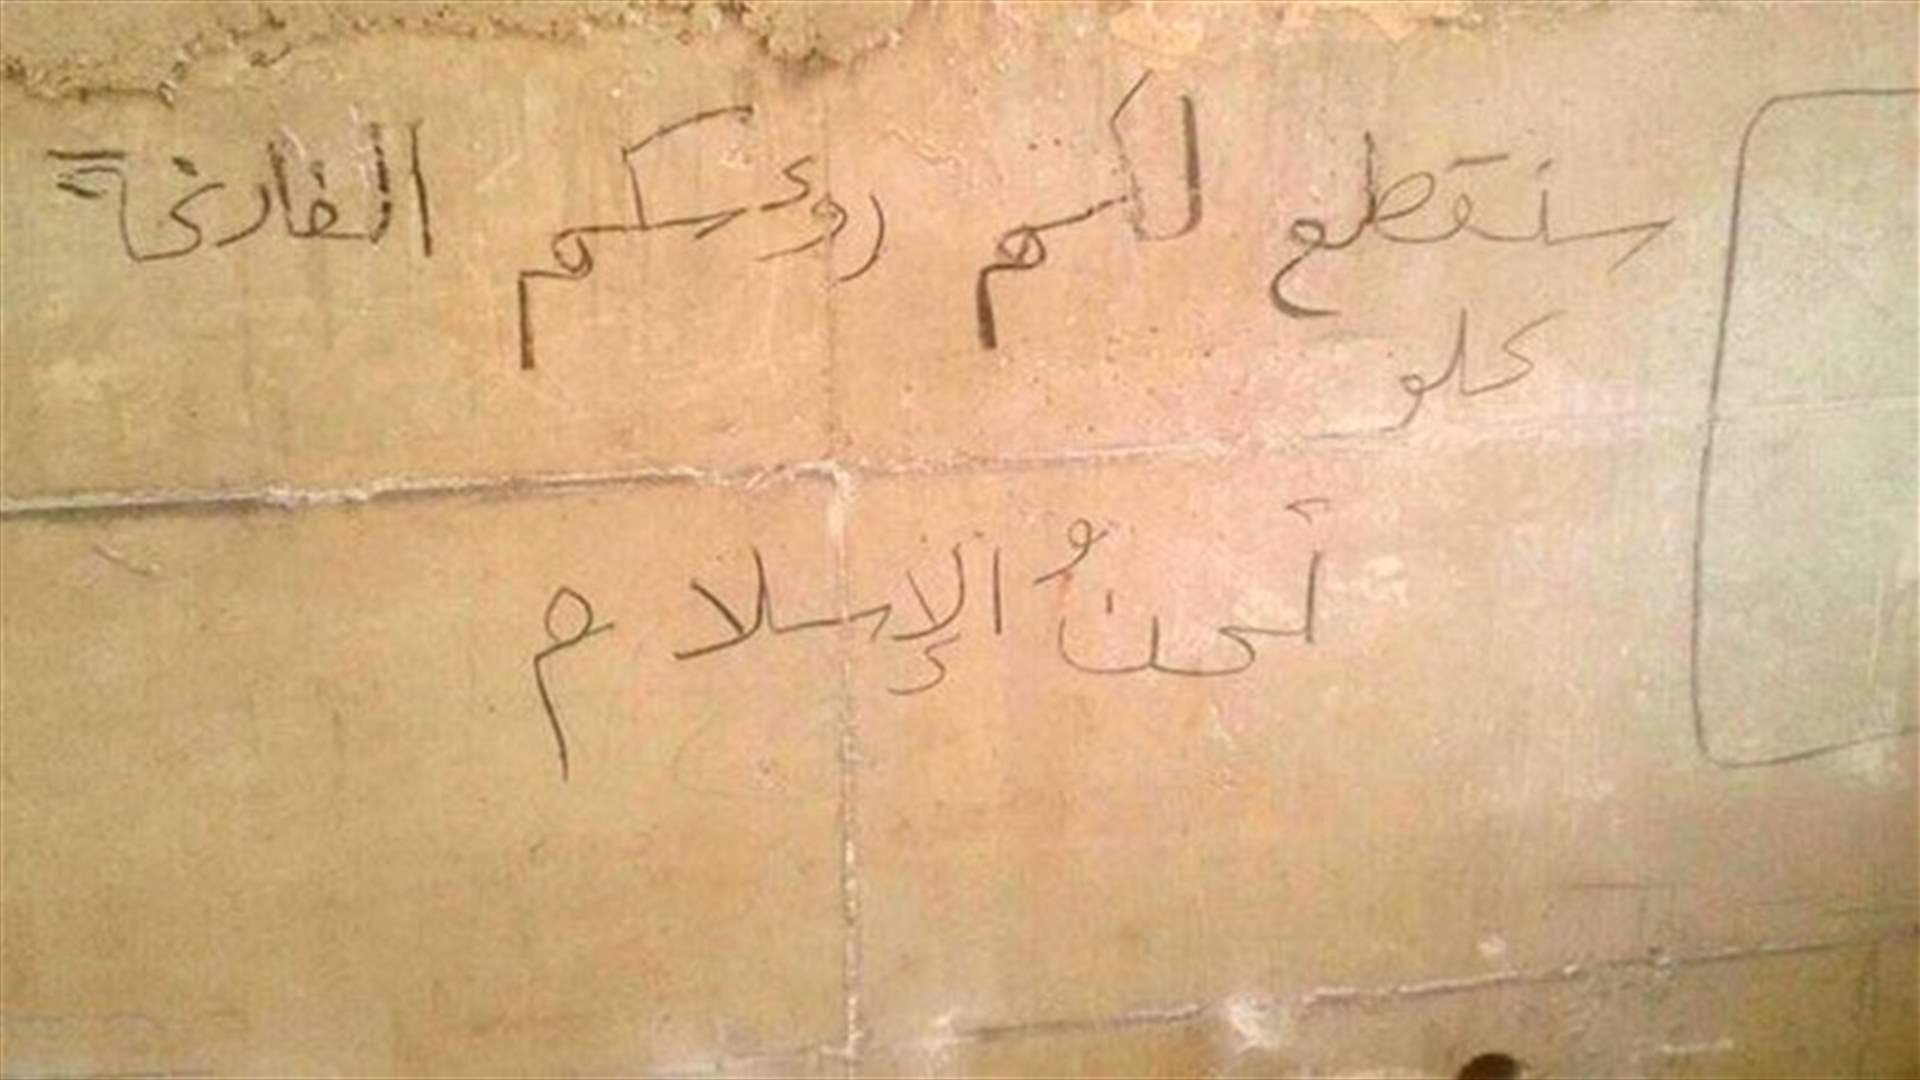 سنقطع لكم رؤسكم الفارغة
نحنُ الإسلام